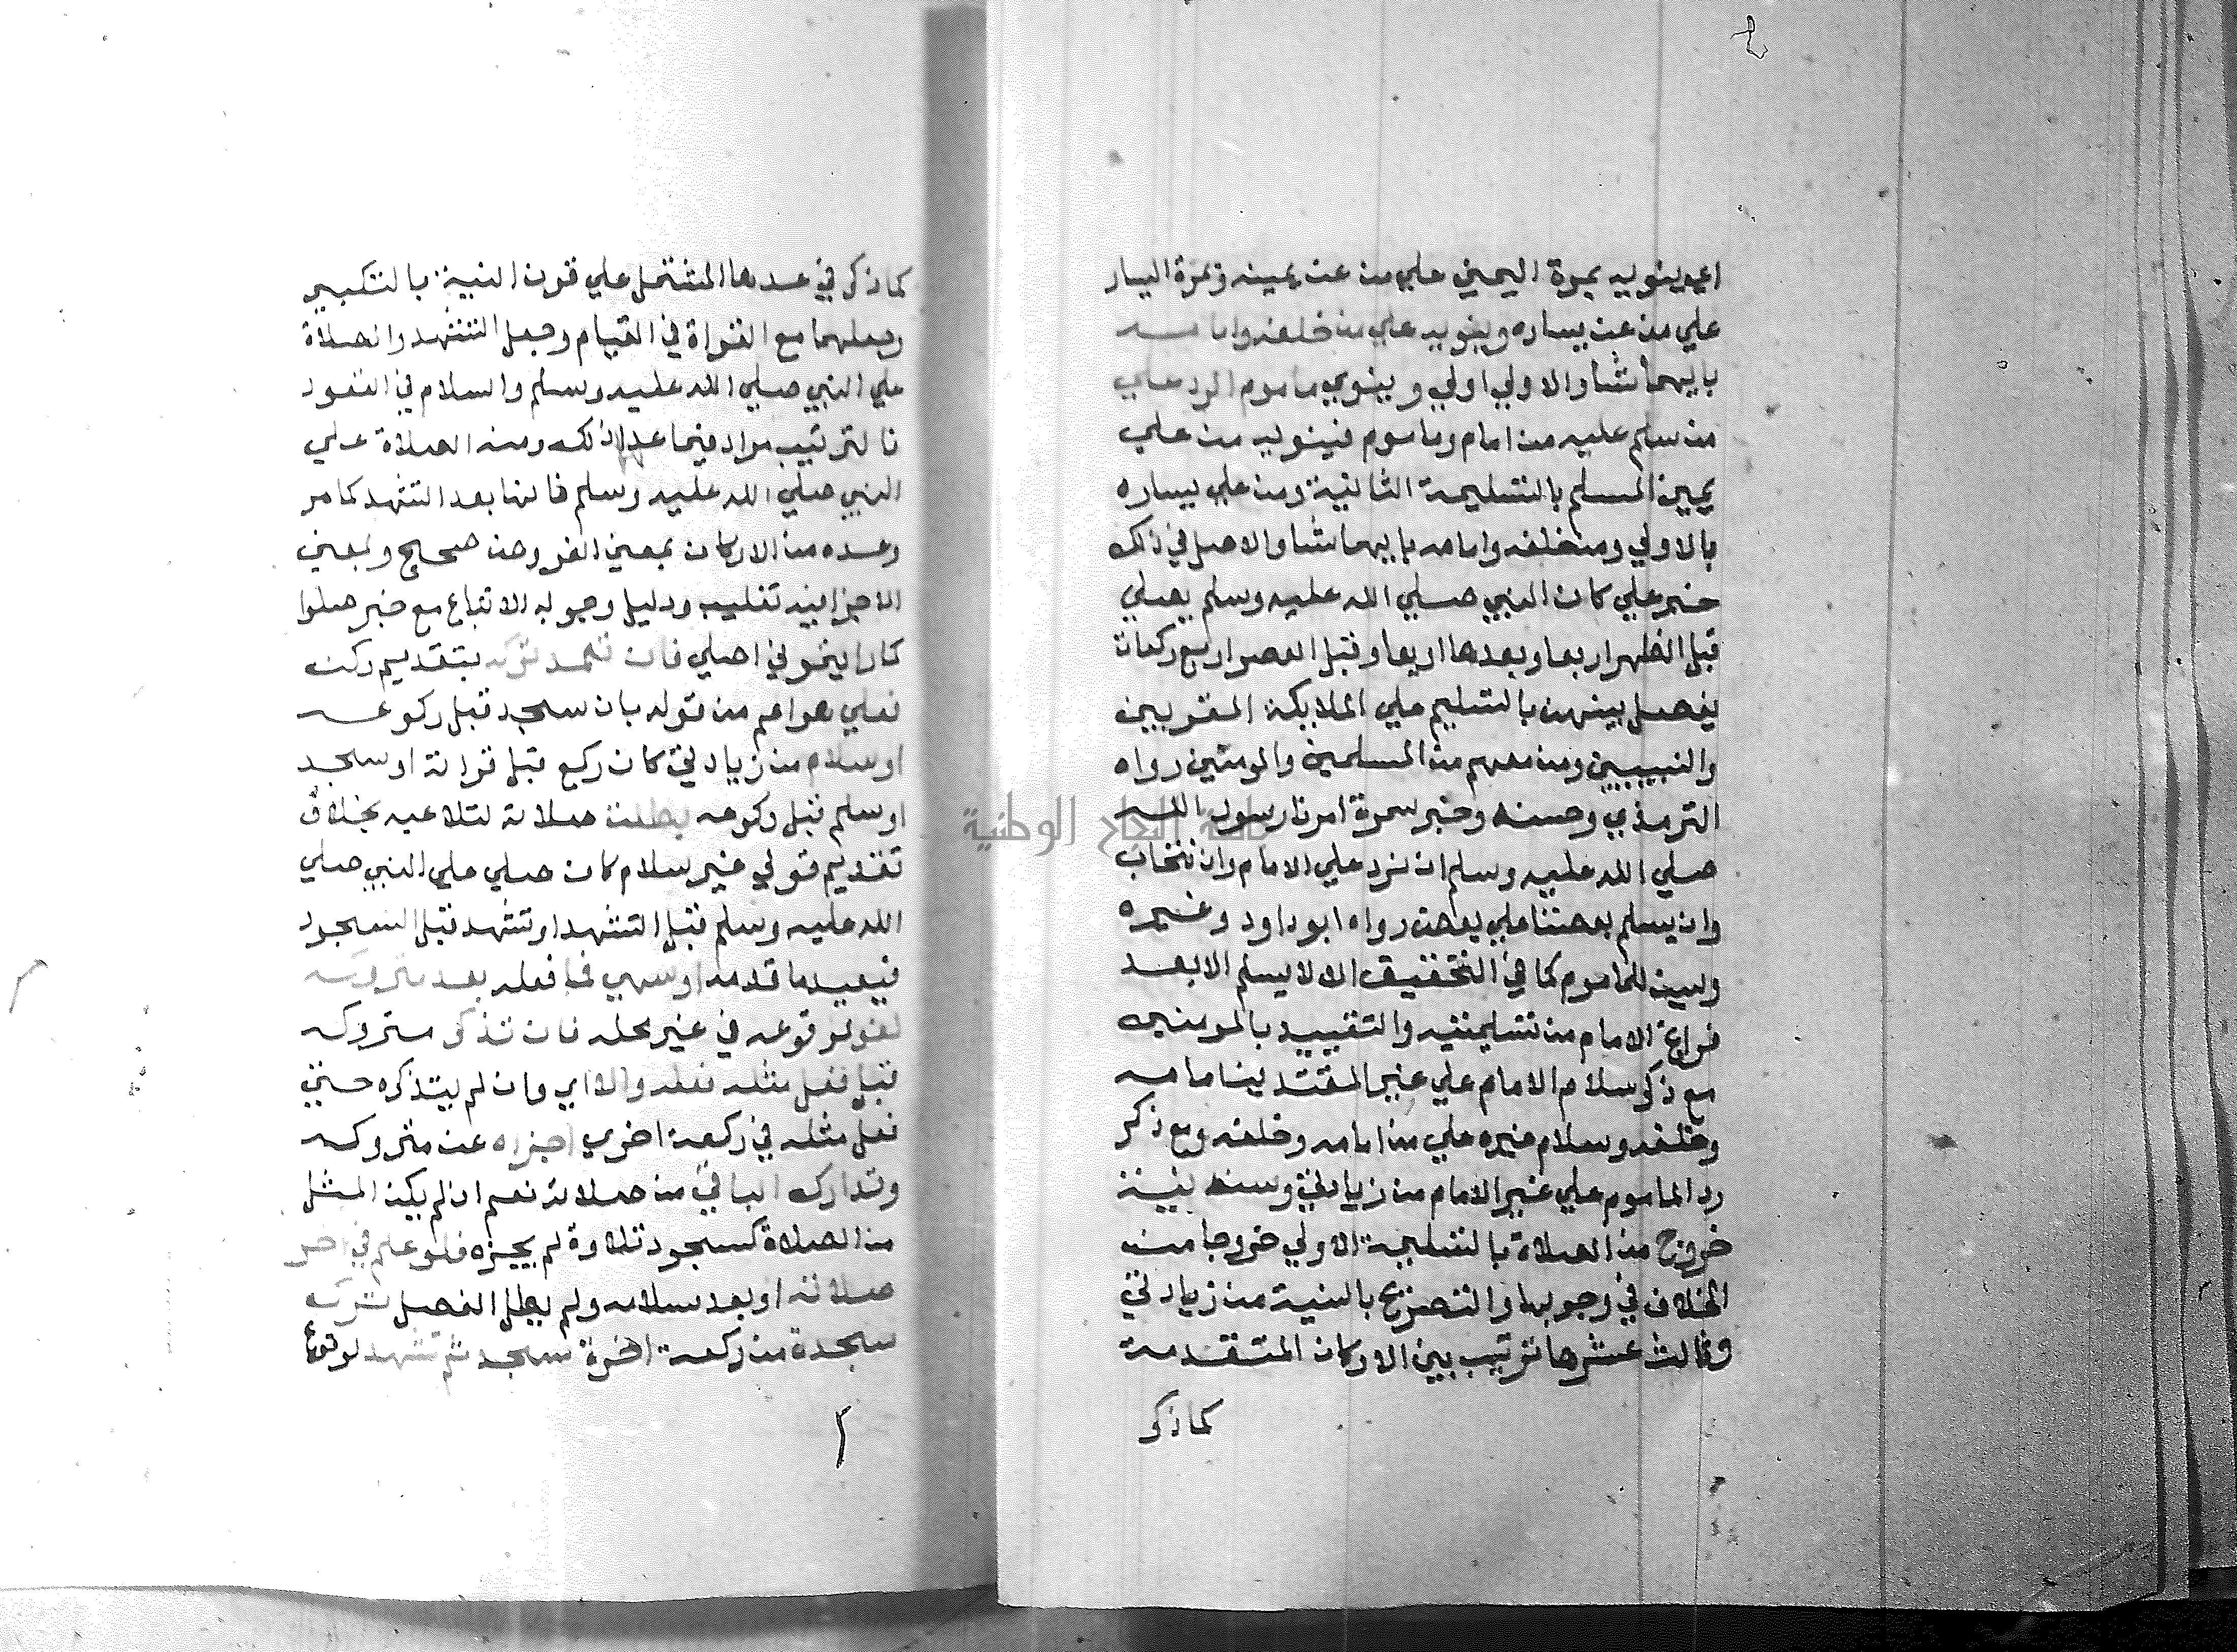 اي ينويه بمرة اليمين علي من عن يمينه وبمرة اليسار
علي من عن يساره وينويه علي من خلفه وامامه
بايهما شا والاولي اولي وينوي ماموم الرد علي
من سلم عليه من امام وماموم فينويه من علي
يمين المسلم بالتسليمة الثانية ومن علي يساره
بالاولي ومن خلفه وامامه بايهما شا والاصل في ذلك
خبر علي كان النبي صلي الله عليه وسلم يصلي
قبل الظهر اربعا وبعدها اربعا وقبل العصر اربع ركعات
يفصل بينهن بالتسليم علي الملايكة المقربين
والنبيين ومن معهم من المسلمين والمومنين رواه
الترمذي وحسنه وخبر سمرة امرنا رسول الله
صلي الله عليه وسلم ان نرد علي الامام وان نتحاب
وان يسلم بعضنا علي بعض رواه ابو داود وغيره
وليسن للماموم كما في التحقيق ان لا يسلم الا بعد
فراغ الامام من تسليمتيه والتقييد بالمومنين
مع ذكر سلام الامام علي غير المقتدين امامه
وخلفه وسلام غيره علي من امامه وخلفه ومع ذكر
رد الماموم علي غير الامام من زيادتي وسنه نية
خروج من الصلاة بالتسليمة الاولي خروجا من
الخلاف في وجوبها والتصريح بالسنية من زيادتي
وثالث عشرها ترتيب بين الاركان المتقدمة
كما ذكر
كما ذكر في عدها المشتمل علي قرن النية بالتكبير
وجعلهما مع القراة في القيام وجعل التشهد والصلاة
علي النبي صلي الله عليه وسلم والسلام في القعود
فالترتيب مراد فيما عدا ذلك ومنه الصلاة علي
النبي صلي الله عليه وسلم فانها بعد التشهد كما مر
وعده من الاركان بمعني الفروض صحيح وبمعني
الاجزا فيه تغليب ودليل وجوبه الاتباع مع خبر صلوا
كما رايتموني اصلي فان تعمد تركه بتقديم ركن
فعلي هو اعم من قوله بان سجد قبل ركوعه
او سلام من زيادتي كان ركع قبل قراته او سجد
او سلم قبل ركوعه بطلت صلاته لتلاعبه بخلاف
تقديم قولي غير سلام كان صلي علي النبي صلي
الله عليه وسلم قبل التشهد او تشهد قبل السجود
فيعيد ما قدمه او سهي فما فعله بعد متروكه
لغو لوقوعه في غير محله فان تذكر متروكه
قبل فعل مثله فعله والا اي وان لم يتذكره حتي
فعل مثله في ركعة اخري اجزاه عن متروكه
وتدارك الباقي من صلاته نعم ان لم يكن المثل
من الصلاة كسجود تلاوة لم يجزه فلو علم في اخر
صلاته او بعد سلامه ولم يطل الفصل ترك
سجدة من ركعة اخيرة سجد ثم تشهد لوقوع